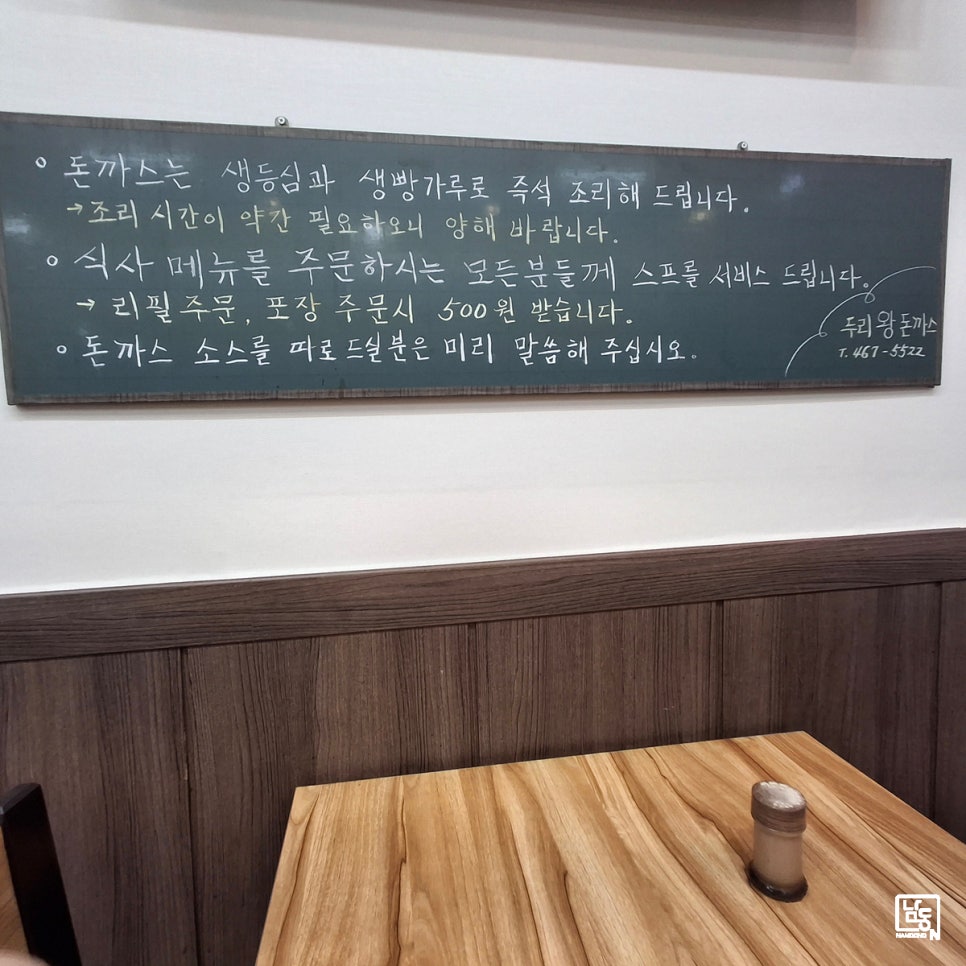 ° 돈까스는 생등심과 생빵가루로 즉석 조리해 드립니다.
→조리 시간이 약간 필요하오니 양해 바랍니다.
° 식사 메뉴를 주문하시는 모든분들께 스프를 서비스 드립니다.
→ 리필 주문, 포장 주문시 500원 받습니다.
° 돈까스 소스를 따로드실분은 미리 말씀해 주십시오.
두리 왕돈까스
T. 467-5522